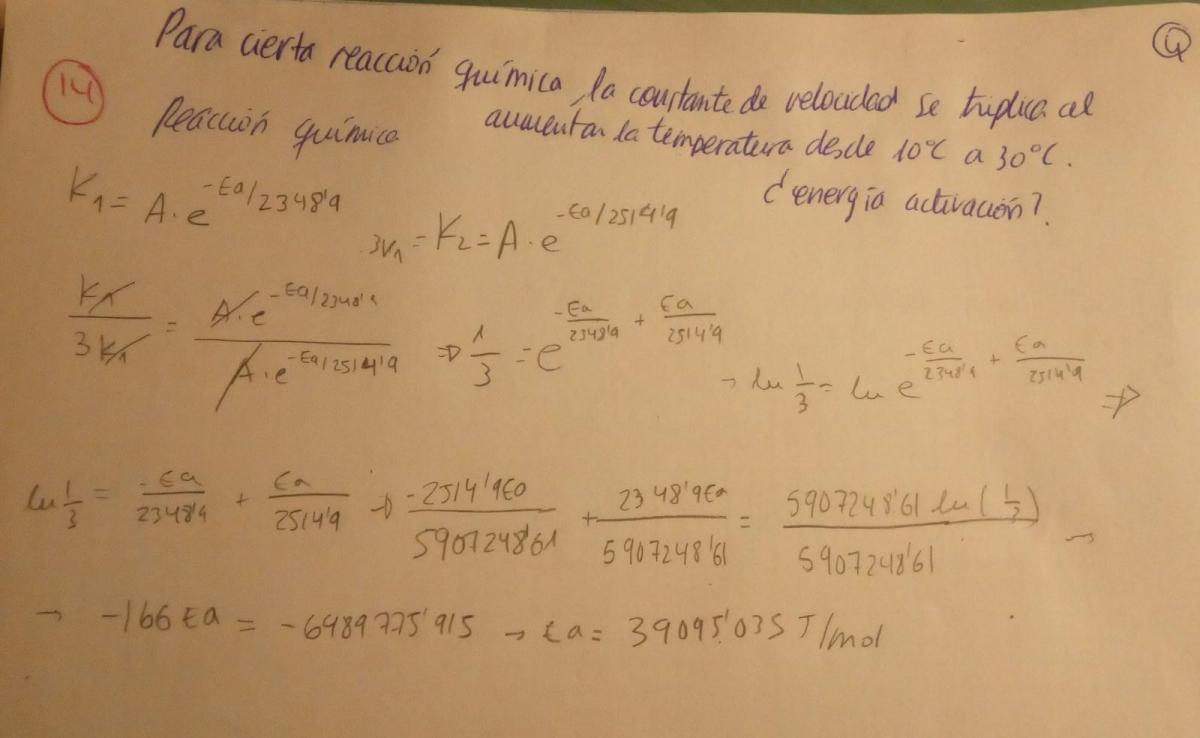 Para cierta reacción química, la constante de velocidad se triplica al
aumentar la temperatura desde 10°C a 30°C.
¿energía activación?
Q
14
Reacción química
K1 = A·e^-Ea/2348'9
3K1 = K2 = A·e^-Ea/2514'9
K1/3K1 = A·e^-Ea/2348'9 / A·e^-Ea/2514'9 ⇒ 1/3 = e^-Ea/2348'9 + Ea/2514'9 → ln 1/3 = ln e^-Ea/2348'9 + Ea/2514'9 ⇒
ln 1/3 = -Ea/2348'9 + Ea/2514'9 → -2514'9Ea/5907248'61 + 2348'9Ea/5907248'61 = 5907248'61 ln(1/3)/5907248'61 →
→ -166Ea = -6489775'915 → Ea = 39095'035 J/mol